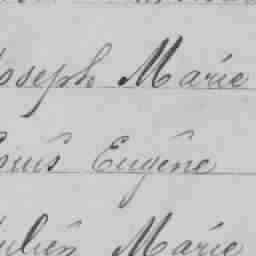 Joseph Marie
Louis Eugène
Julien Marie